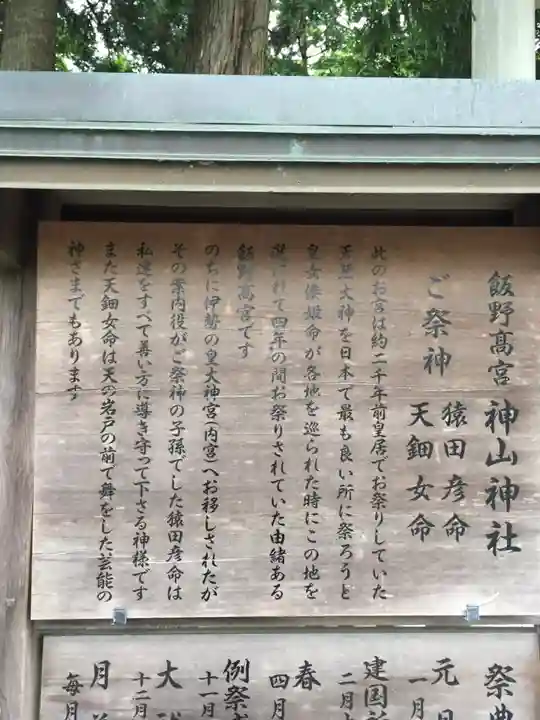 飯野高宮 神山神社
ご祭神 猿田彦命
天鈿女命
此のお宮は約二千年前皇居でお祭りしていた
天照大神を日本で最も良い所に祭ろうと
皇女倭姫命が各地を巡られた時にこの地を
選ばれて四年の間お祭りされていた由緒ある
飯野高宮です
のちに伊勢の皇大神宮(内宮)へお移しされたが
その案内役がご祭神の子孫でした猿田彦命は
私達をすべて善い方に導き守って下さる神様です
また天鈿女命は天の岩戸の前で舞をした芸能の
神さまでもあります
祭典
元旦
一月
建国
二月
春
四月
例祭
十一月
大
十二月
月
毎月